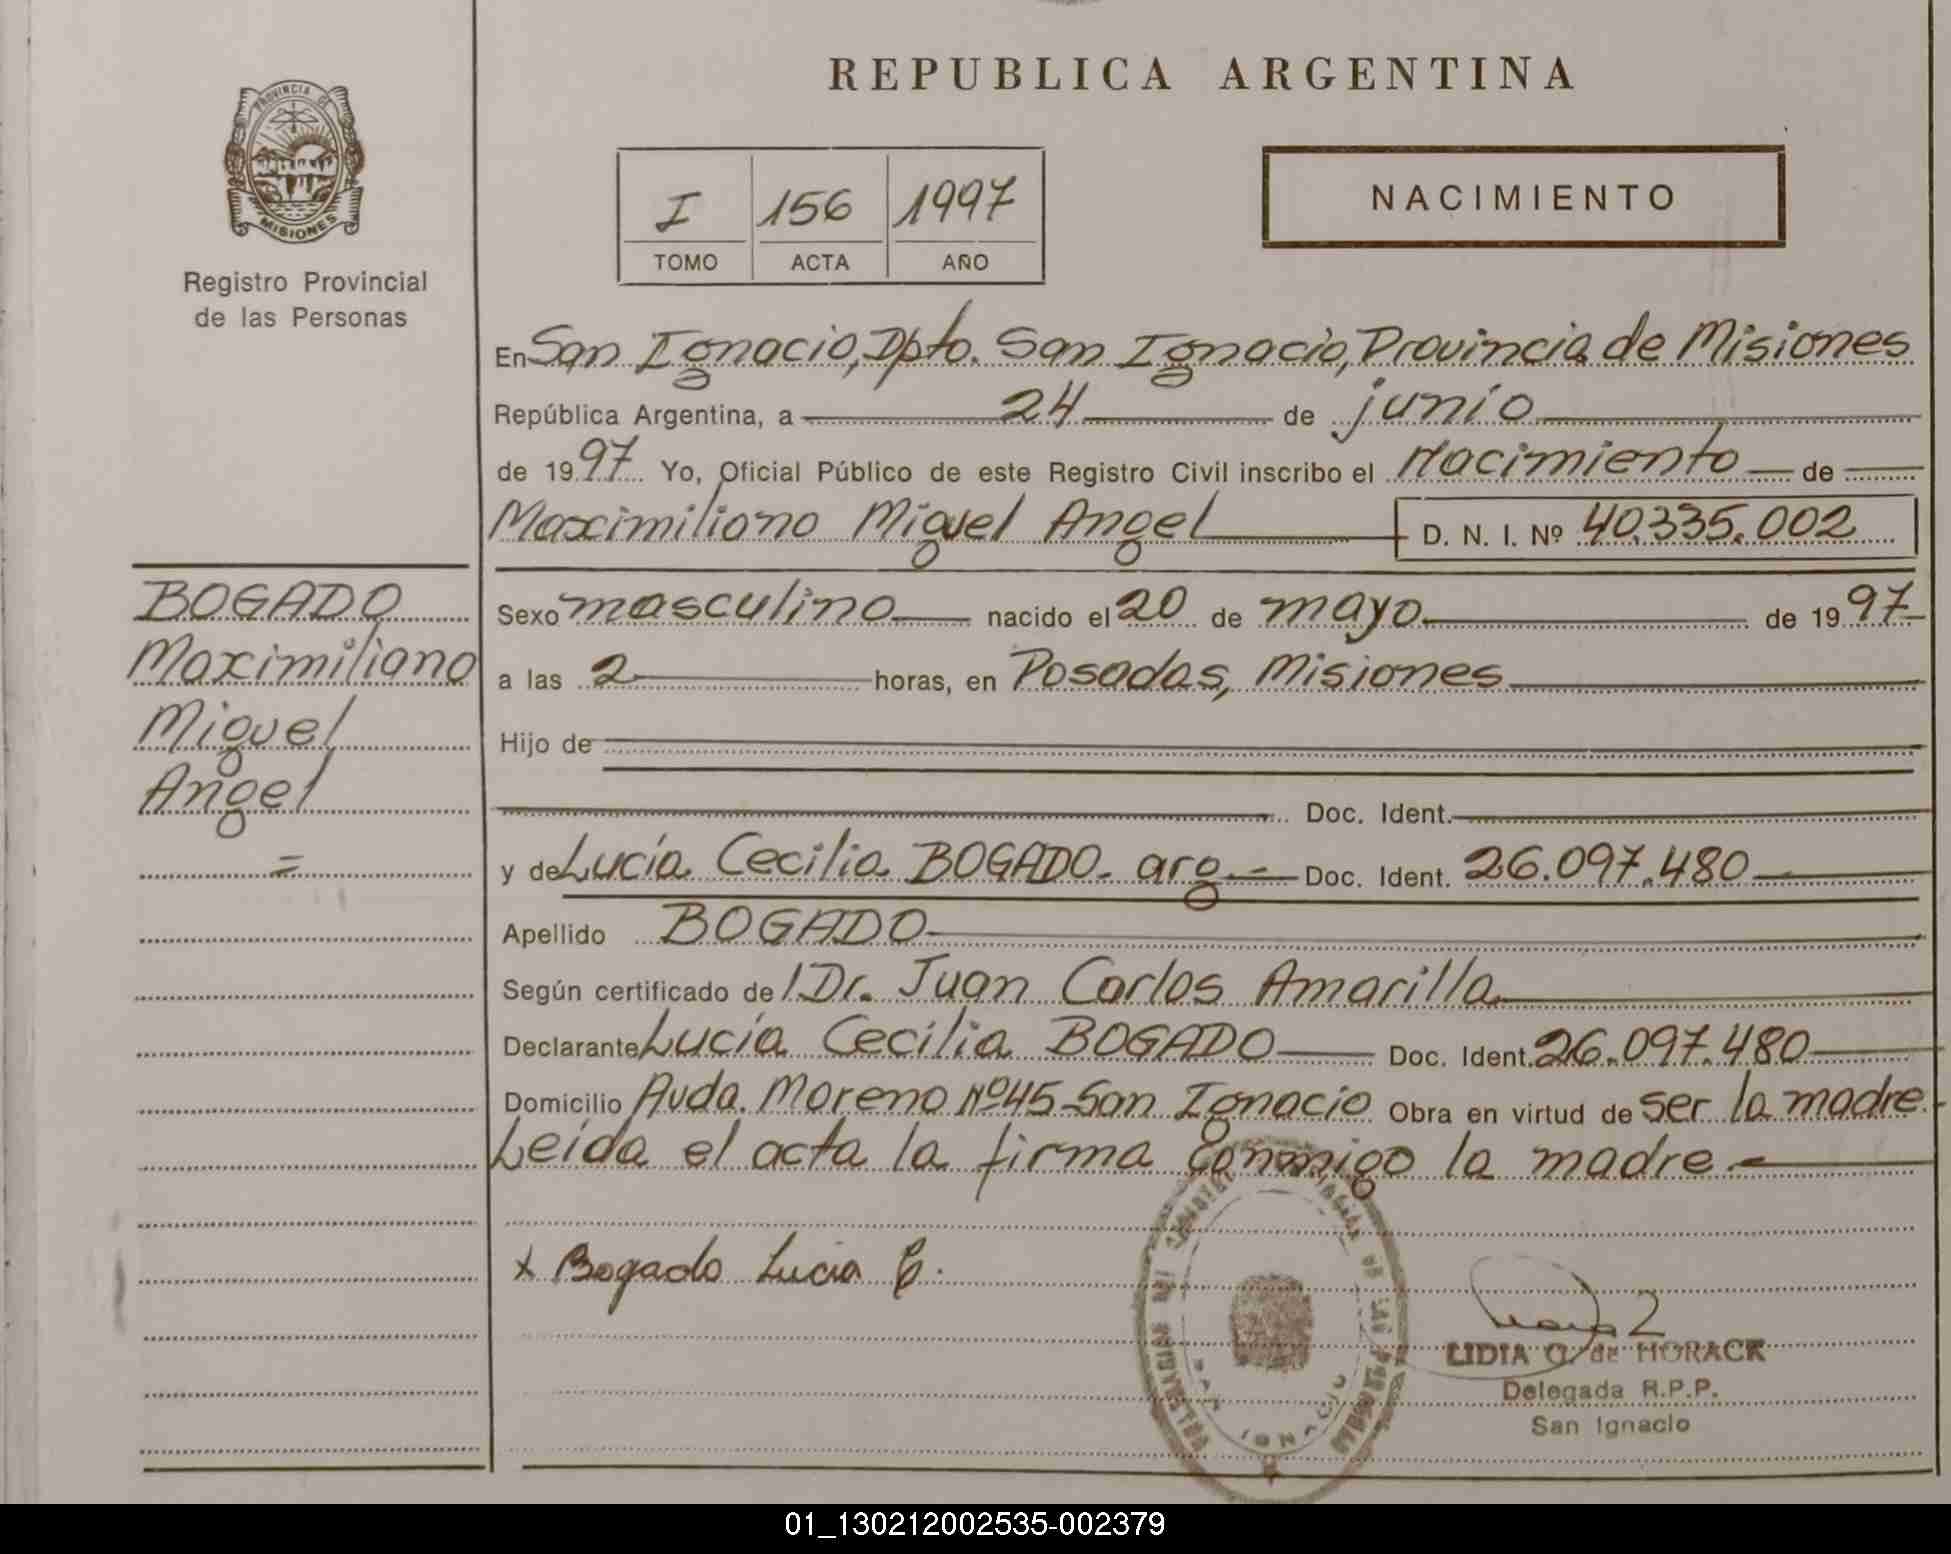 REPUBLICA ARGENTINA
PROVINCIA DE
MISIONES
Registro Provincial
de las Personas
I 156 1997
TOMO ACTA AÑO
NACIMIENTO
En San Ignacio, Dpto. San Ignacio, Provincia de Misiones
República Argentina, a 24 de junio
de 1997 Yo, Oficial Público de este Registro Civil inscribo el Nacimiento de
Maximiliano Miguel Angel D. N. I. Nº 40.335.002
BOGADO
Maximiliano
Miguel
Angel
=
Sexo masculino nacido el 20 de mayo de 1997
a las 2 horas, en Posadas, Misiones
Hijo de
Doc. Ident.
y de Lucía Cecilia BOGADO. arg.- Doc. Ident. 26.097.480
Apellido BOGADO
Según certificado del Dr. Juan Carlos Amarilla
Declarante Lucía Cecilia BOGADO Doc. Ident. 26.097.480
Domicilio Avda. Moreno Nº45-San Ignacio Obra en virtud de ser la madre.
Leída el acta la firma conmigo la madre.-
x Bogado Lucia C.
DE LAS
SAN IGNACIO
LIDIA O. de HORACK
Delegada R.P.P.
San Ignacio
01_130212002535-002379